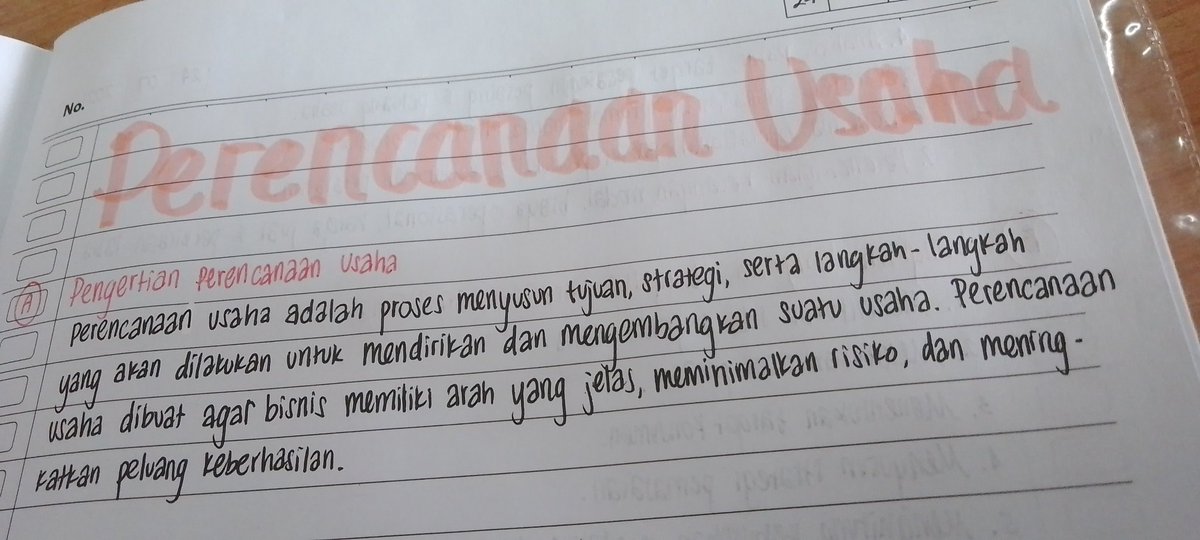 No.
Perencanaan Usaha
A Pengertian Perencanaan Usaha
Perencanaan usaha adalah proses menyusun tujuan, strategi, serta langkah-langkah
yang akan dilakukan untuk mendirikan dan mengembangkan suatu usaha. Perencanaan
usaha dibuat agar bisnis memiliki arah yang jelas, meminimalkan risiko, dan mening-
katkan peluang keberhasilan.